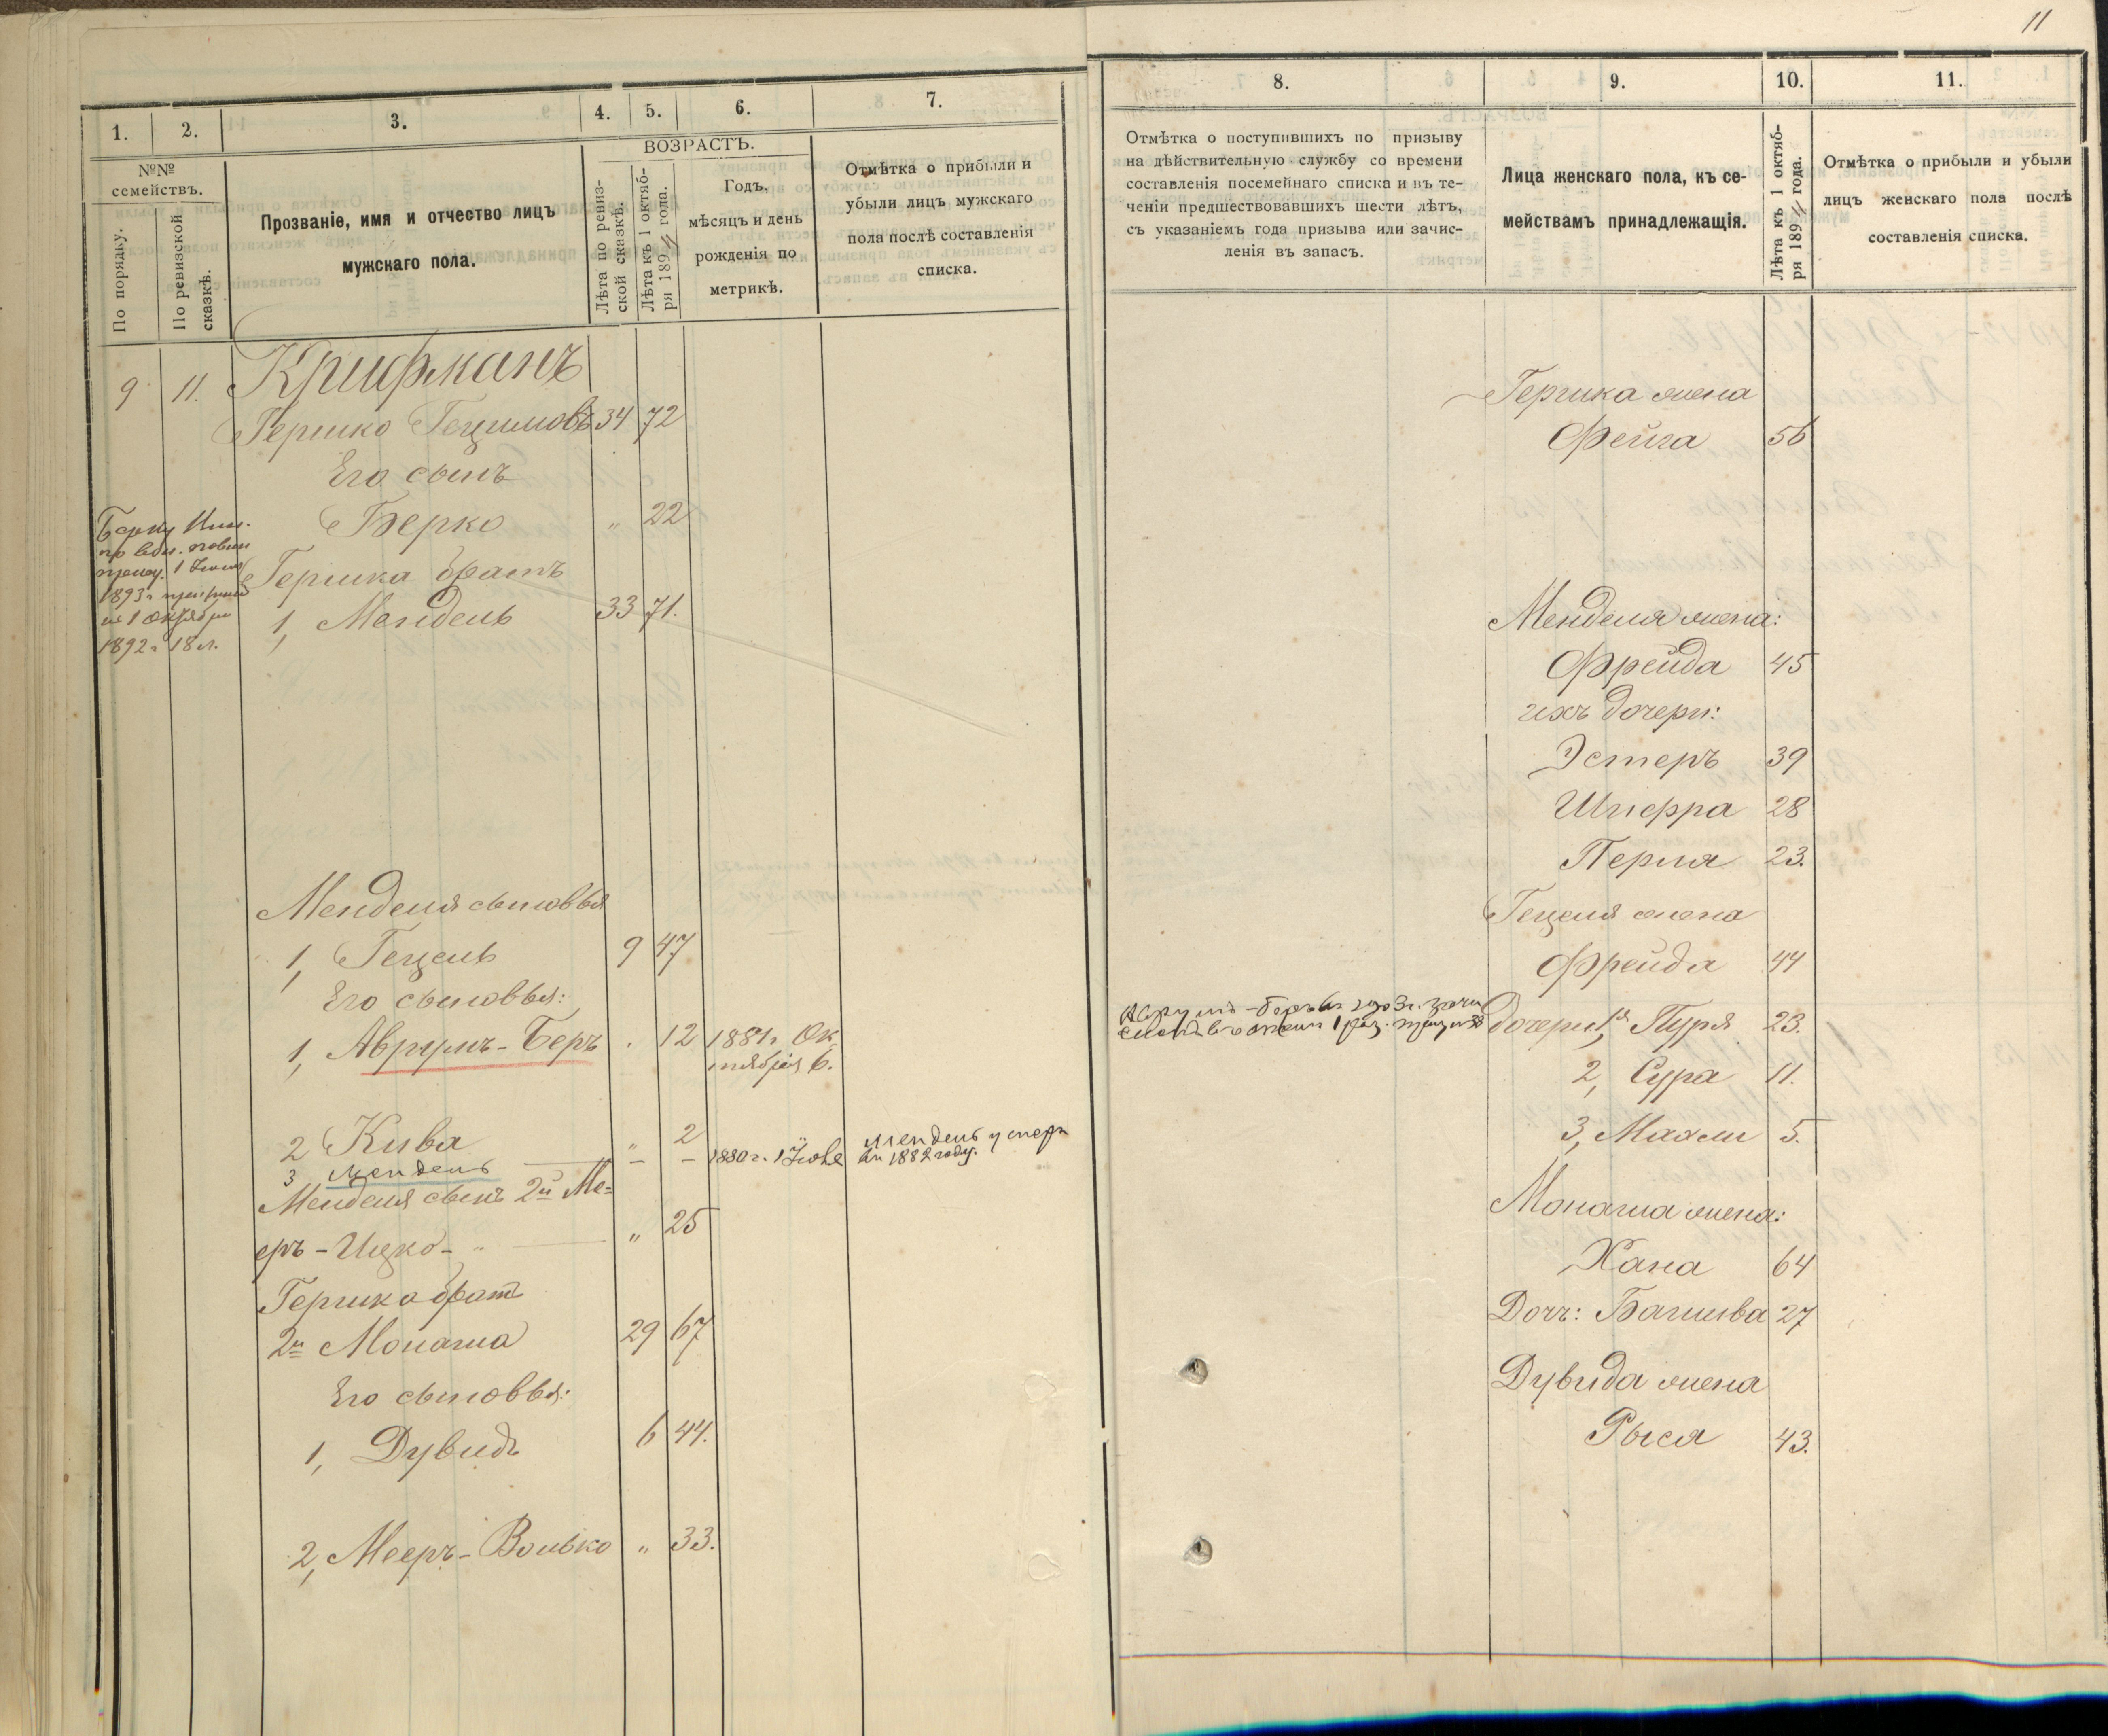 11
1.
2.
3.
4.
5.
6.
7.
№№
семействъ.
По порядку.
По ревизской
сказкѣ.
Прозваніе, имя и отчество лицъ
мужскаго пола.
ВОЗРАСТЪ.
Лѣта по ревиз-
ской сказкѣ.
Лѣта къ 1 октяб-
ря 189 года.
Годъ,
мѣсяцъ и день
рожденія по
метрикѣ.
Отмѣтка о прибыли и
убыли лицъ мужскаго
пола послѣ составленія
списка.
9 11. Крифманъ
Гершко Гецимовъ 34 72
Его сынъ
Берко " 22
Берку
1 Іюня
1893 г.
1 Октября
1892 г 18 л.
Гершка братъ
1, Мендель 33 71.
Менделя сыновья
1, Гецель 9 47
Его сыновья:
1, Аврумъ-Беръ . 12 1881 г. Ок
тября 6.
2 Кива " 2
3 Мендель – – 1880 г. 1 Мендель умеръ
въ 1882 году.
Менделя сынъ 2й Ме=
еръ-Ицко- " 25
Гершка братъ
2й Монаша 29 67
Его сыновья:
1, Дувидъ 6 44.
2, Мееръ-Волько " 33.
8.
9.
10.
11.
Отмѣтка о поступившихъ по призыву
на дѣйствительную службу со времени
составленія посемейнаго списка и въ те-
ченіи предшествовавшихъ шести лѣтъ,
съ указаніемъ года призыва или зачис-
ленія въ запасъ.
Лица женскаго пола, къ се-
мействамъ принадлежащія.
Лѣта къ 1 октяб-
ря 189 года.
Отмѣтка о прибыли и убыли
лицъ женскаго пола послѣ
составленія списка.
Гершка жена
Фейга 56
Менделя жена:
Фрейда 45
ихъ дочери:
Эстеръ 39
Шифра 28
Перля 23.
Гецеля жена
Фрейда 44
дочери: 1я Пуря 23.
2, Сура 11.
3, Махли 5.
Монаша жена:
Хана 64
Дочь: Башива 27
Дувида жена
Рыся 43.